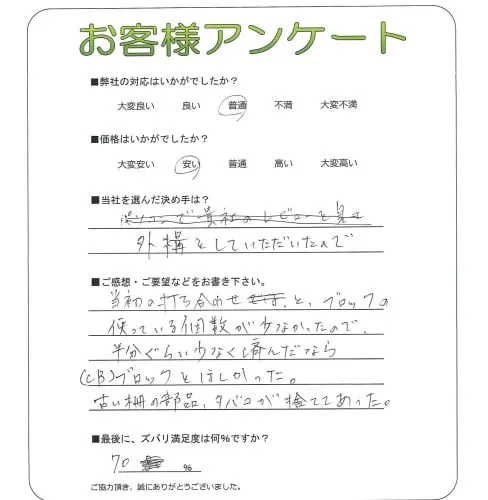 お客様アンケート
■弊社の対応はいかがでしたか?
大変良い 良い 普通 不満 大変不満
■価格はいかがでしたか?
大変安い 安い 普通 高い 大変高い
■当社を選んだ決め手は?
パソコンで貴社のレビューを見て
外構をしていただいたので
■ご感想・ご要望などをお書き下さい。
当初の打ち合わせ と、ブロックの
使っている個数が少なかったので、
半分ぐらい少なく済んだなら
(CB)ブロックをほしかった。
古い柵の部品、タバコが捨ててあった。
■最後に、ズバリ満足度は何%ですか?
70 %
ご協力頂き、誠にありがとうございました。